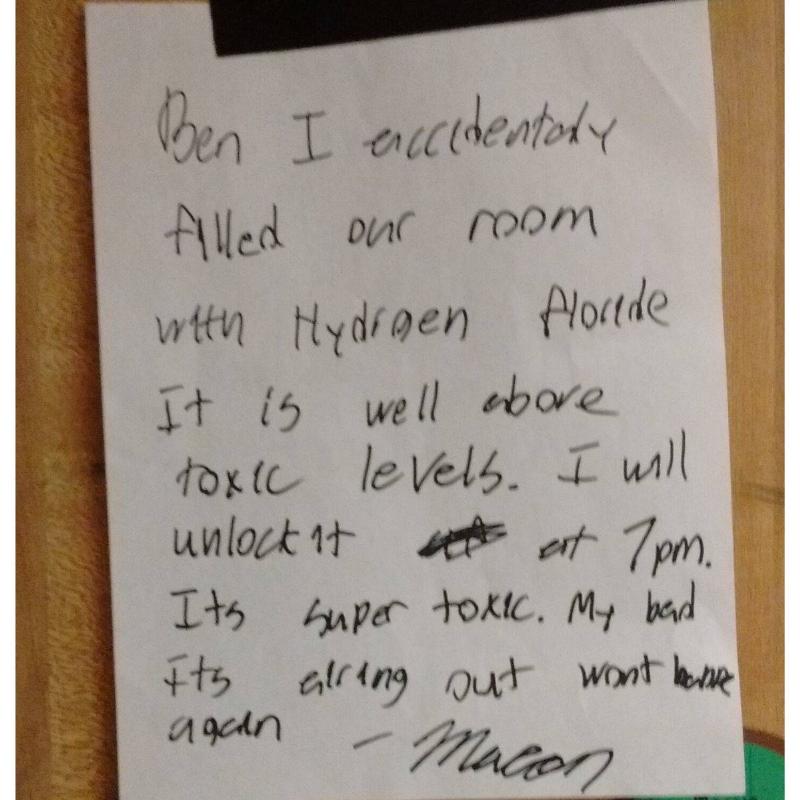 Ben I accidentaly
filled our room
with Hydrogen floride
It is well above
toxic levels. I will
unlock it at 7pm.
Its super toxic. My bad
Its airing out wont
again
- Macon